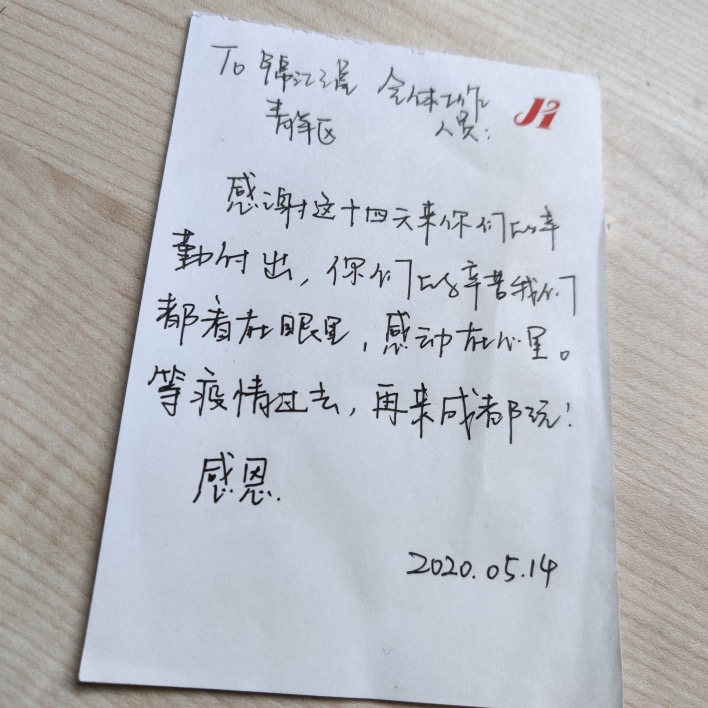 To 锦江之星 全体工作
青羊区 人员:
JJ
感谢这十四天来你们的辛
勤付出,你们的辛苦我们
都看在眼里,感动在心里。
等疫情过去,再来成都玩!
感恩.
2020.05.14